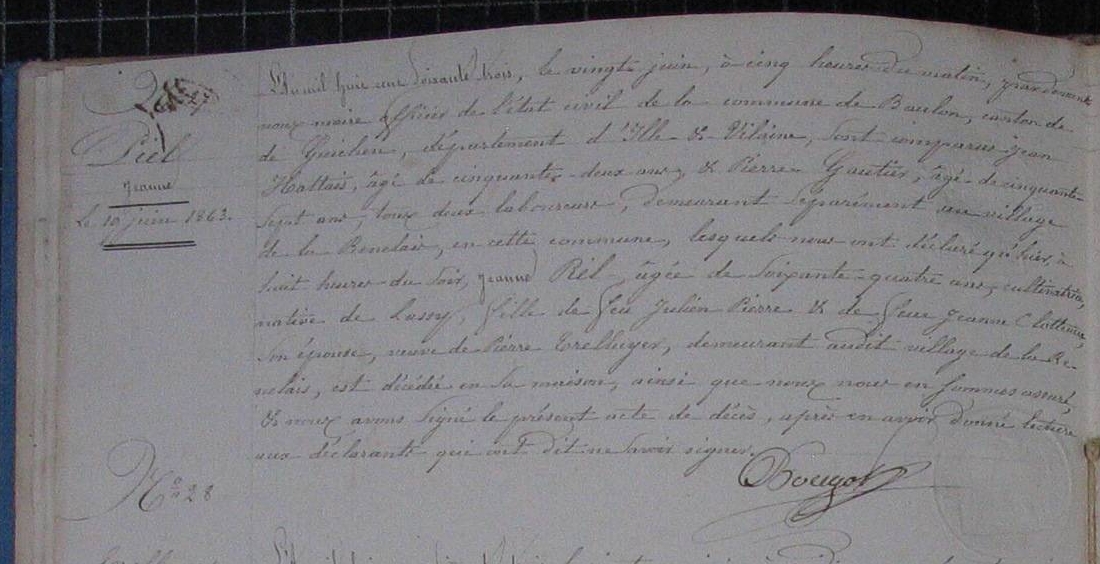 Piel
Jeanne
Le 19 juin 1863.
L'An mil huit cent soixante trois, le vingt juin, à cinq heures du matin, par devant
nous maire officier de l'état civil de la commune de Baulon, canton de
de Guichen, département d'Ille & Vilaine, sont comparus Jean
Hattais, âgé de cinquante-deux ans, & Pierre Gautier, âgé de cinquante-
sept ans, tous deux laboureurs, demeurant séparément au village
de la Benelais, en cette commune, lesquels nous ont déclaré qu'hier, à
huit heures du soir, Jeanne Piel, âgée de soixante-quatre ans, cultivatrice,
native de Lassy, fille de feu Julien Pierre & de feue Jeanne
son épouse, veuve de Pierre demeurant audit village de la Be-
nelais, est décédée en sa maison, ainsi que nous nous en sommes assuré,
& nous avons signé le présent acte de décès, après en avoir donné lecture
aux déclarants qui ont dit ne savoir signer.
Nº 28